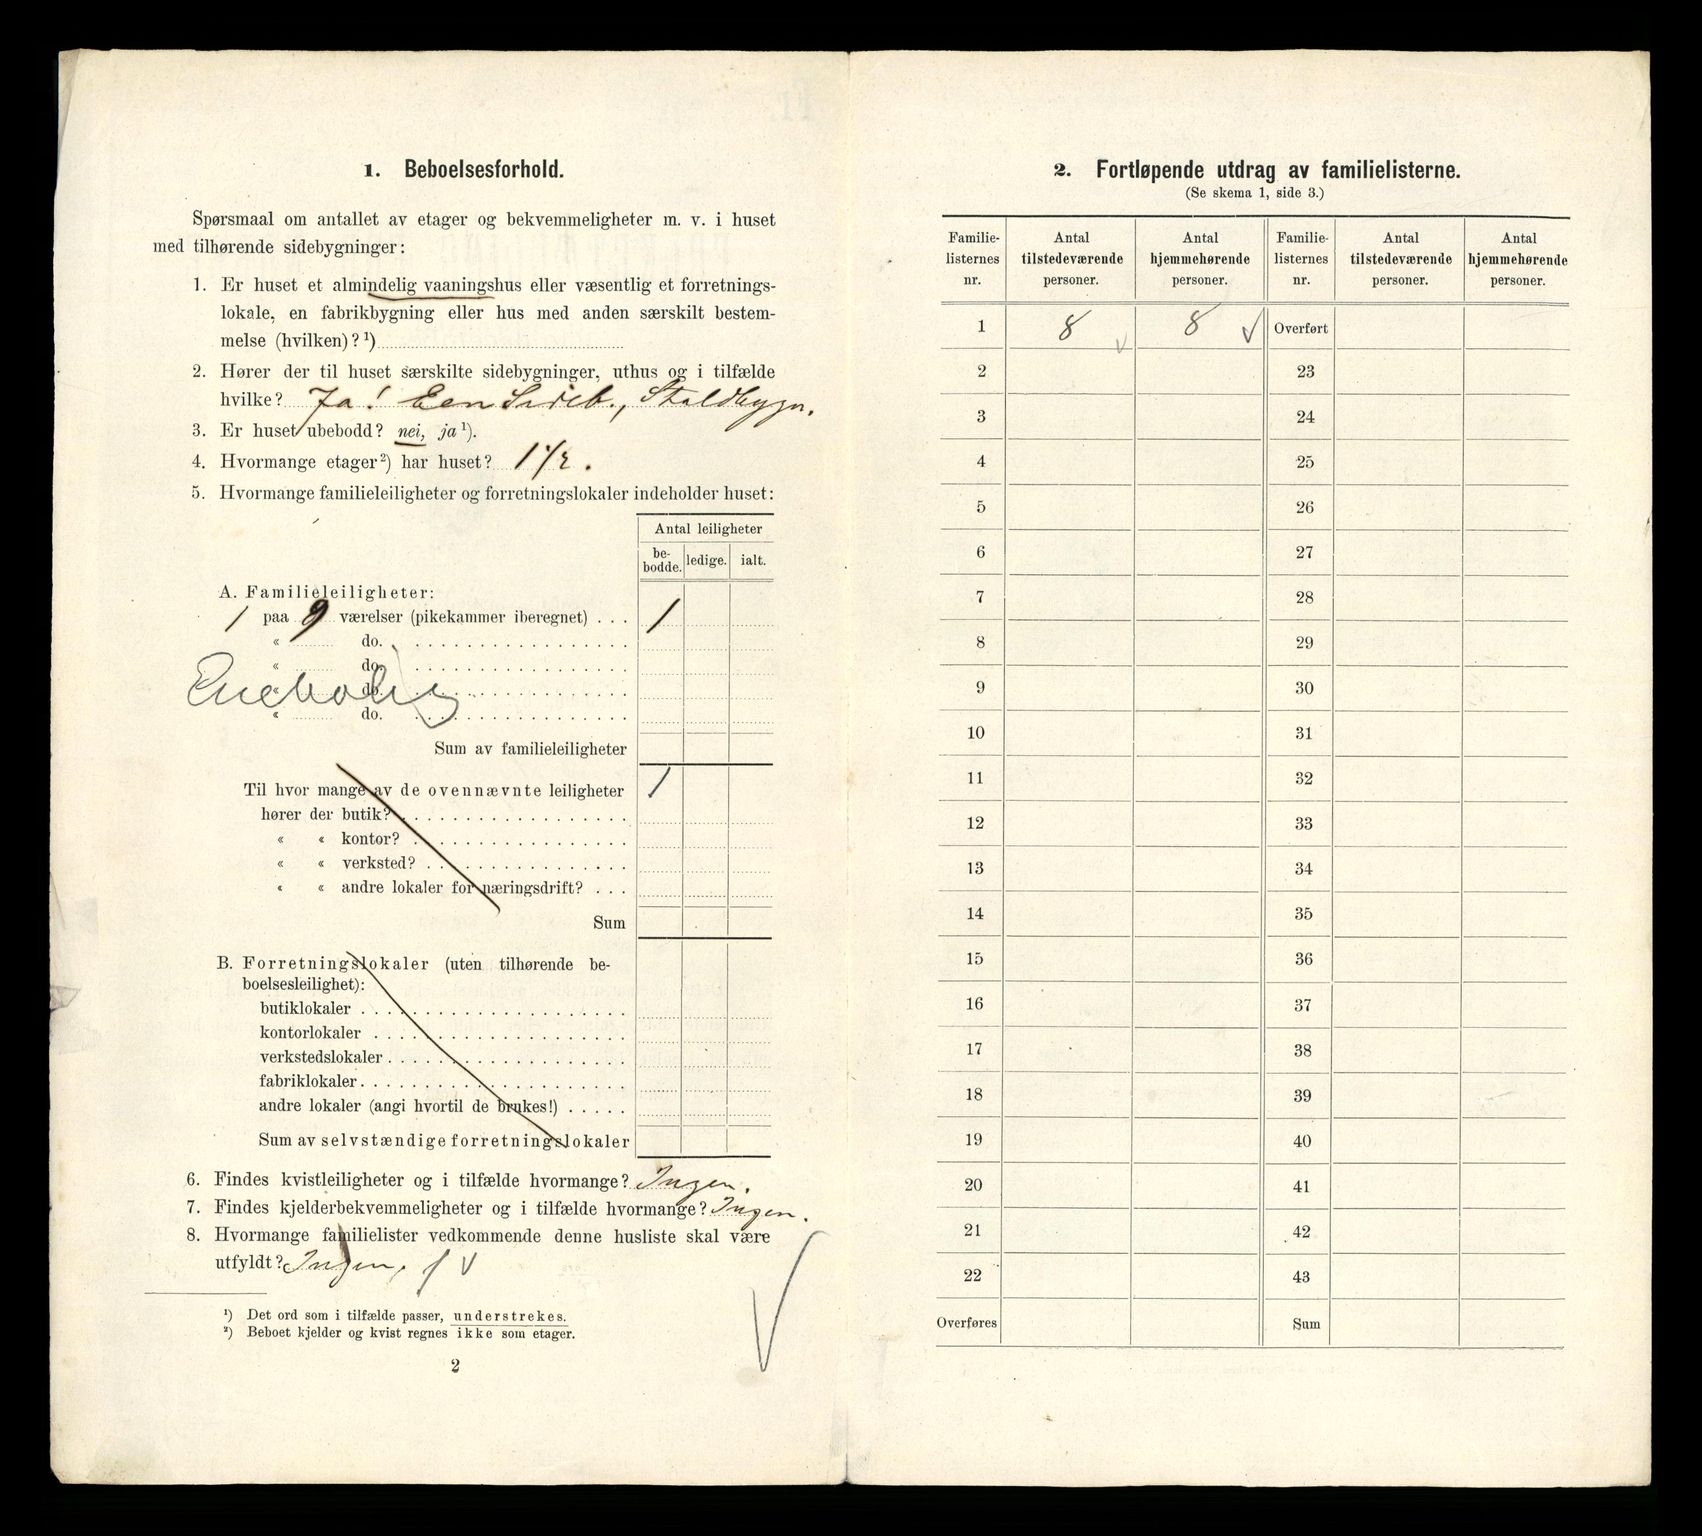 1. Beboelsesforhold.
Spørsmaal om antallet av etager og bekvemmeligheter m. v. i huset
med tilhørende sidebygninger:
1. Er huset et almindelig vaaningshus eller væsentlig et forretnings-
lokale, en fabrikbygning eller hus med anden særskilt bestem-
melse (hvilken)?¹)
2. Hører der til huset særskilte sidebygninger, uthus og i tilfælde
hvilke? Ja! Een Sideb., Staldbygn.
3. Er huset ubebodd? nei, ja¹).
4. Hvormange etager²) har huset? 1 1/2.
5. Hvormange familieleiligheter og forretningslokaler indeholder huset:
Antal leiligheter
be-
bodde. ledige. ialt.
A. Familieleiligheter:
1 paa 9 værelser (pikekammer iberegnet) . . . 1
« do.
« do.
« do.
« do.
Sum av familieleiligheter
Til hvor mange av de ovennævnte leiligheter 1
hører der butik?
« « kontor?
« « verksted?
« « andre lokaler for næringsdrift? . . .
Sum
B. Forretningslokaler (uten tilhørende be-
boelsesleilighet):
butiklokaler
kontorlokaler
verkstedslokaler
fabriklokaler
andre lokaler (angi hvortil de brukes!)
Sum av selvstændige forretningslokaler
6. Findes kvistleiligheter og i tilfælde hvormange? Ingen.
7. Findes kjelderbekvemmeligheter og i tilfælde hvormange? Ingen.
8. Hvormange familielister vedkommende denne husliste skal være
utfyldt? Ingen. 1 v
¹) Det ord som i tilfælde passer, understrekes.
²) Beboet kjelder og kvist regnes ikke som etager.
2
2. Fortløpende utdrag av familielisterne.
(Se skema 1, side 3.)
Familie-
listernes
nr. Antal
tilstedeværende
personer. Antal
hjemmehørende
personer. Familie-
listernes
nr. Antal
tilstedeværende
personer. Antal
hjemmehørende
personer.
1 8 v 8 v Overført
2 23
3 24
4 25
5 26
6 27
7 28
8 29
9 30
10 31
11 32
12 33
13 34
14 35
15 36
16 37
17 38
18 39
19 40
20 41
21 42
22 43
Overføres Sum